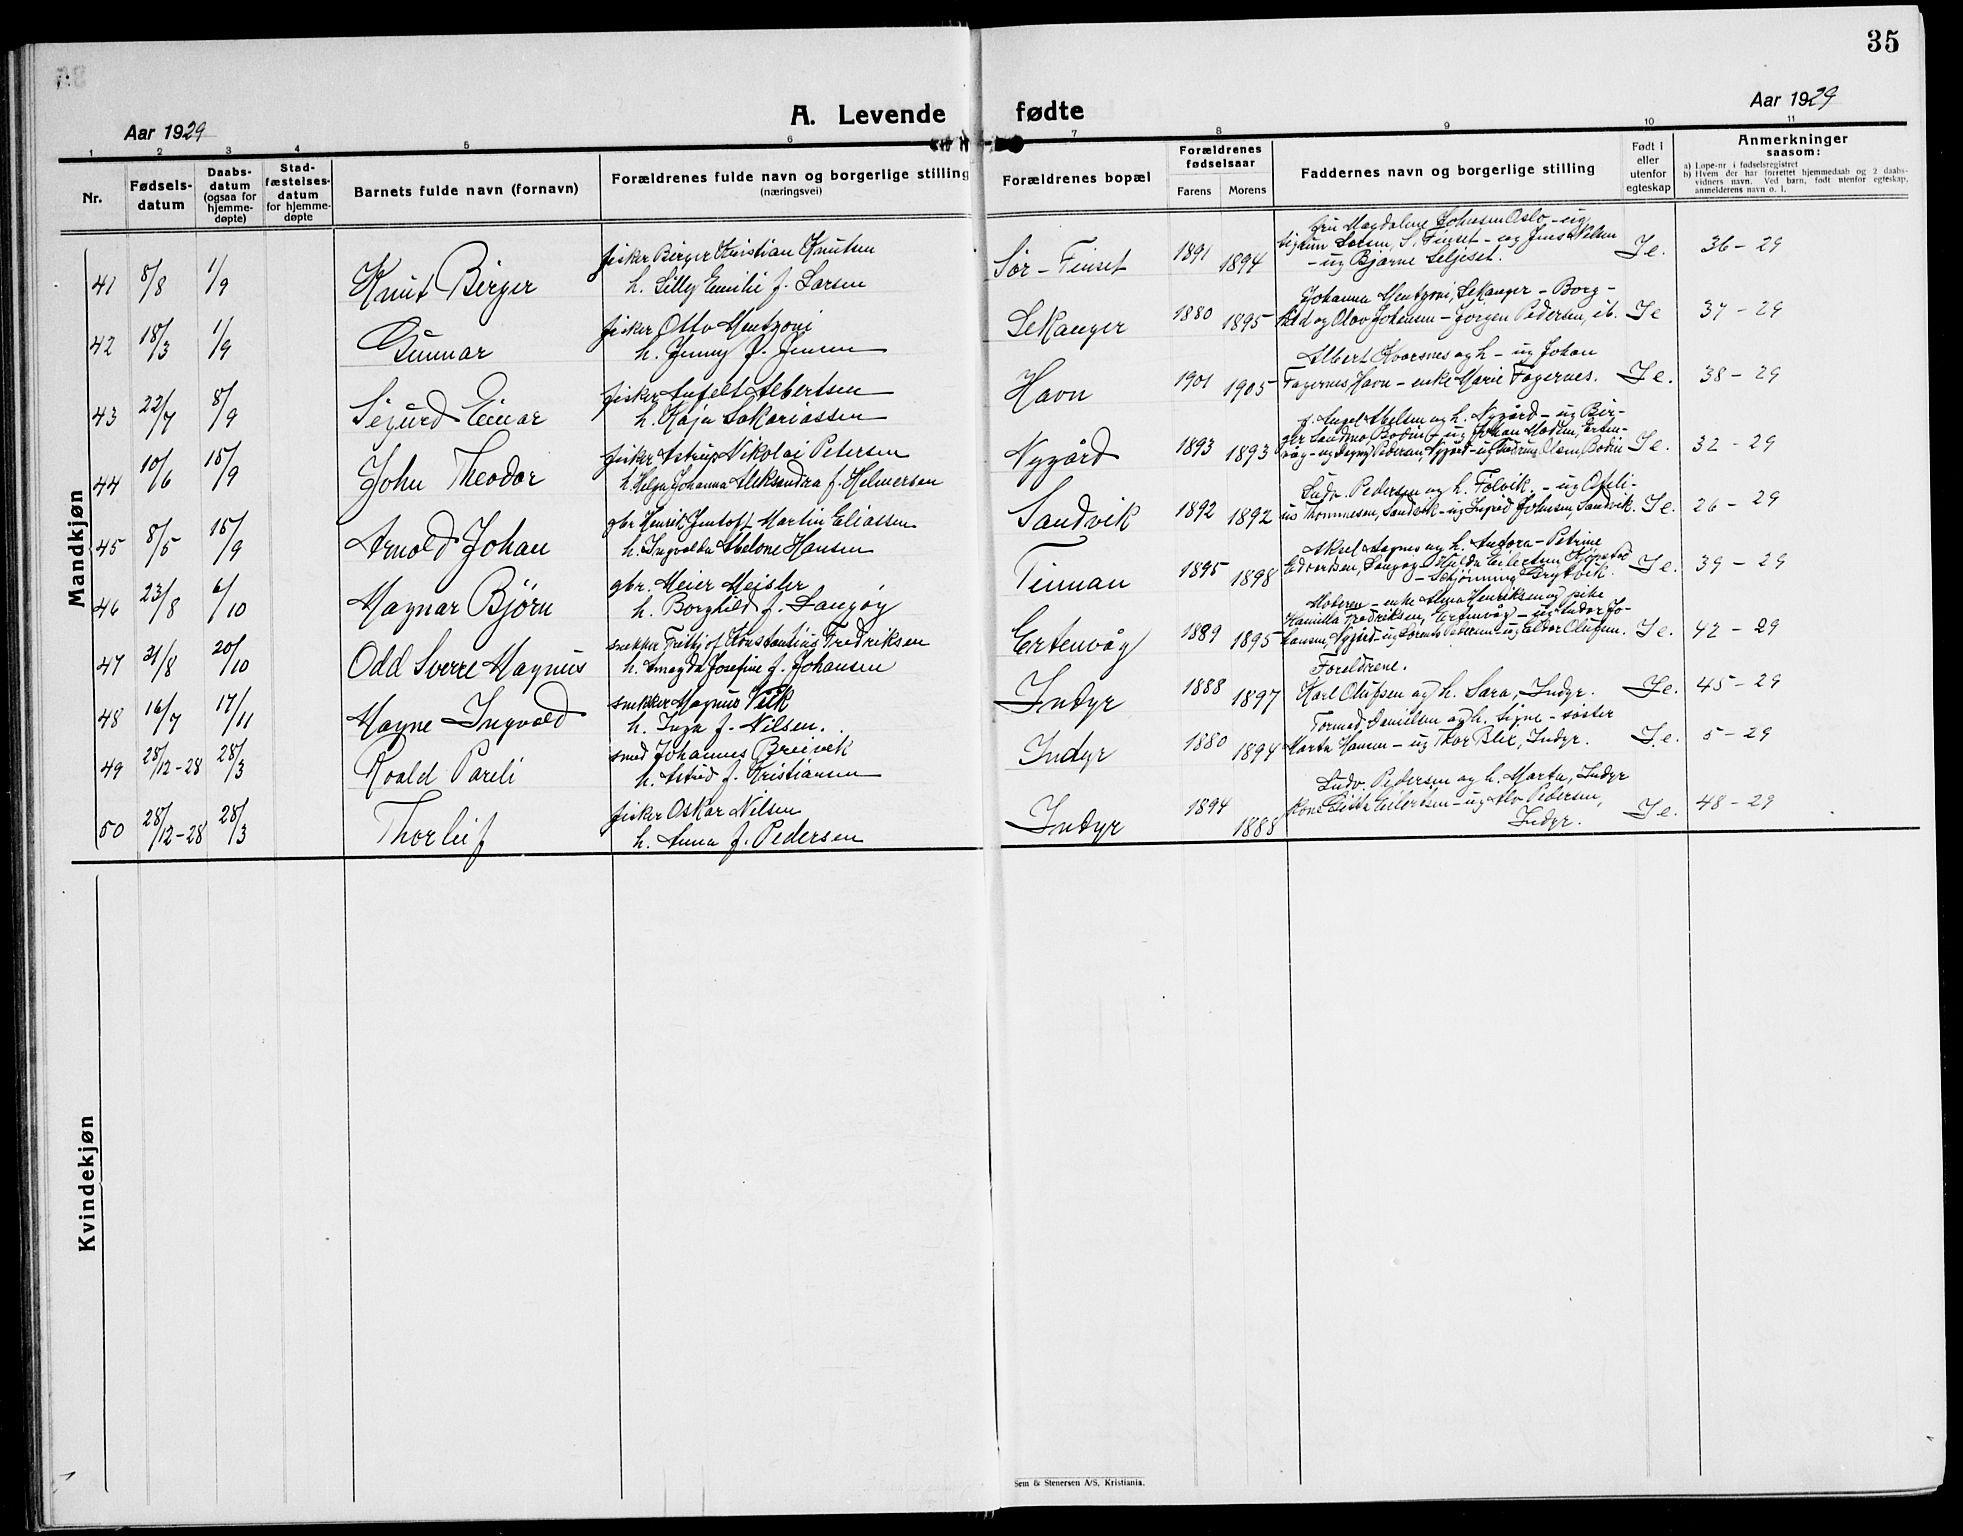 35
A. Levende fødte
Aar 1929
Aar 1929
1 2 3 4 5 6 7 8 9 10 11
Nr.
Fødsels-
datum
Daabs-
datum
(ogsaa for
hjemme-
døpte)
Stad-
fæstelses-
datum
for hjemme-
døpte
Barnets fulde navn (fornavn)
Forældrenes fulde navn og borgerlige stilling
(næringsvei)
Forældrenes bopæl
Forældrenes
fødselsaar
Farens Morens
Faddernes navn og borgerlige stilling
Født i
eller
utenfor
egteskap
Anmerkninger
saasom:
a) Løpe-nr i fødselsregistret
b) Hvem der har forrettet hjemmedaab og 2 daabs-
vidners navn. Ved barn, født utenfor egteskap,
anmelderens navn o. l.
Mandkjøn
41 8/8 1/9 Knut Birger
fisker Birger Kristian Knutsen
h. Lilly Emilie f. Larsen
Sør-Finset 1891 1894
fru Magdalene Johnsen Oslo - ug
Larsen, S. Finset - og Jens Nilsen
- ug Bjarne Seljeset.
Ie. 36-29
42 18/3 1/9 Gunnar
fisker Otto Mentzoni
h. Jenny f. Jensen
Lekanger 1880 1895
Johanna Mentzoni, Lekanger - Borg-
hild og Olav Johansen - Jørgen Pedersen, ib.
Ie 37-29
43 22/7 8/9 Sigurd Einar
fisker Anfelt Albertsen
h. Kaja Sakariassen
Havn 1901 1905
Albert Kvarsnes og h - ug Johan
Fagernes, Havn - enke Marie Fagernes.
Ie. 38-29
44 10/6 15/9 John Theodor
fisker Astrup Nikolai Petersen
h. Helga Johanna Aleksandra f. Helmersen
Nygård 1893 1893
f. Angel Abelsen og h. Nygård - ug Bir-
ger Sandmo, Bodin - ug Johan Madsen, Erten-
våg - ug Dagny Pedersen, Nygård - ug Gudrun Olsen, Bodin
Ie. 32-29
45 8/5 15/9 Arnold Johan
gbr Henrik Jentoft Martin Eliassen
h. Ingvalda Abelone Hansen
Sandvik 1892 1892
Ludv. Pedersen og h. Følvik. - ug Otili-
us Thommesen, Sandvik - ug Ingrid Johnsen, Sandvik.
Ie. 26-29
46 23/8 6/10 Magnar Bjørn
gbr. Meier Meisler
h. Borghild f. Langøy
Finnan 1895 1898
Aksel Aagnes og h. Andora - Petrine
Edvardsen, Langøy - Hilda Eilertsen, Kjøpstad
- Schjønning Brytvik.
Ie. 39-29
47 21/8 20/10 Odd Sverre Magnus
snekker Fritjof Konstantius Fredriksen
h. Amagda Josefine f. Johansen
Ertenvåg 1889 1895
Moderen - enke Alma Henriksen og pike
Hamilla Fredriksen, Ertenvåg - ug Andor Jo-
hansen, Nygård - ug Lorents Pedersen ug Eldor Olufsen.
Ie. 42-29
48 16/7 17/11 Magne Ingvald
snekker Magnus Vik
h. Inga f. Nilsen.
Indyr 1888 1897
Foreldrene.
Karl Olufsen og h. Sara, Indyr.
Ie. 45-29
49 28/12-28 28/3 Roald Pareli
smed Johannes Breivik
h. Astrid f. Kristiansen
Indyr 1880 1894
Tormod Danielsen og h. Signe - søster
Marta Hansen - ug Thor Blix, Indyr.
Ie. 5-29
50 28/12-28 28/3 Thorleif
fisker Oskar Nilsen
h. Anna f. Pedersen
Indyr 1894 1888
Ludv. Pedersen og h. Marta, Indyr
Kone Gitta Eilertsen - ug Alv Pedersen,
Indyr.
Ie. 48-29
Kvindekjøn
Sem & Stenersen A/S, Kristiania.